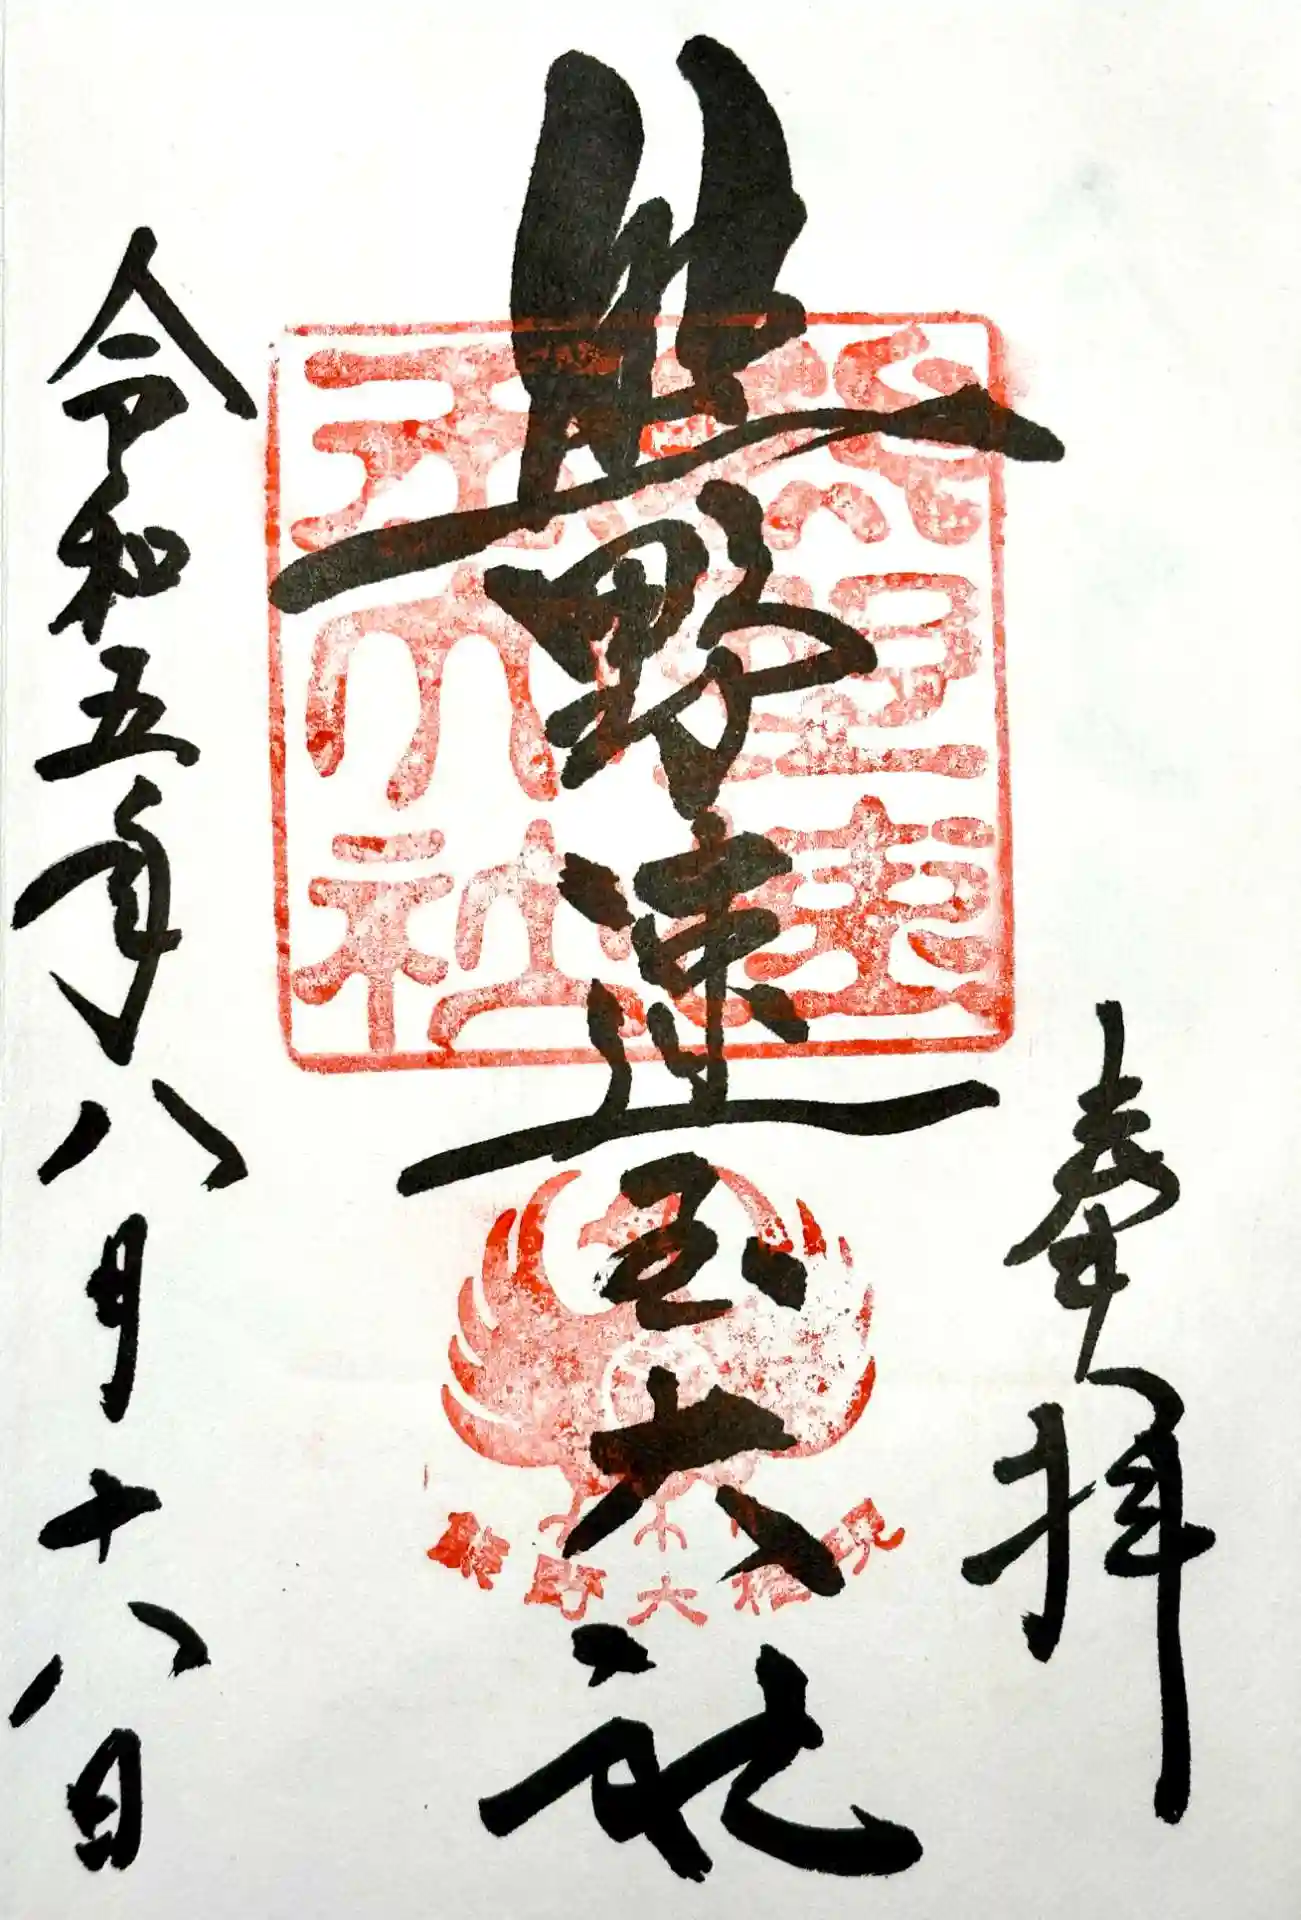 奉拝
熊野速玉大社
熊野速玉大社
熊野大権現
令和五年八月十八日